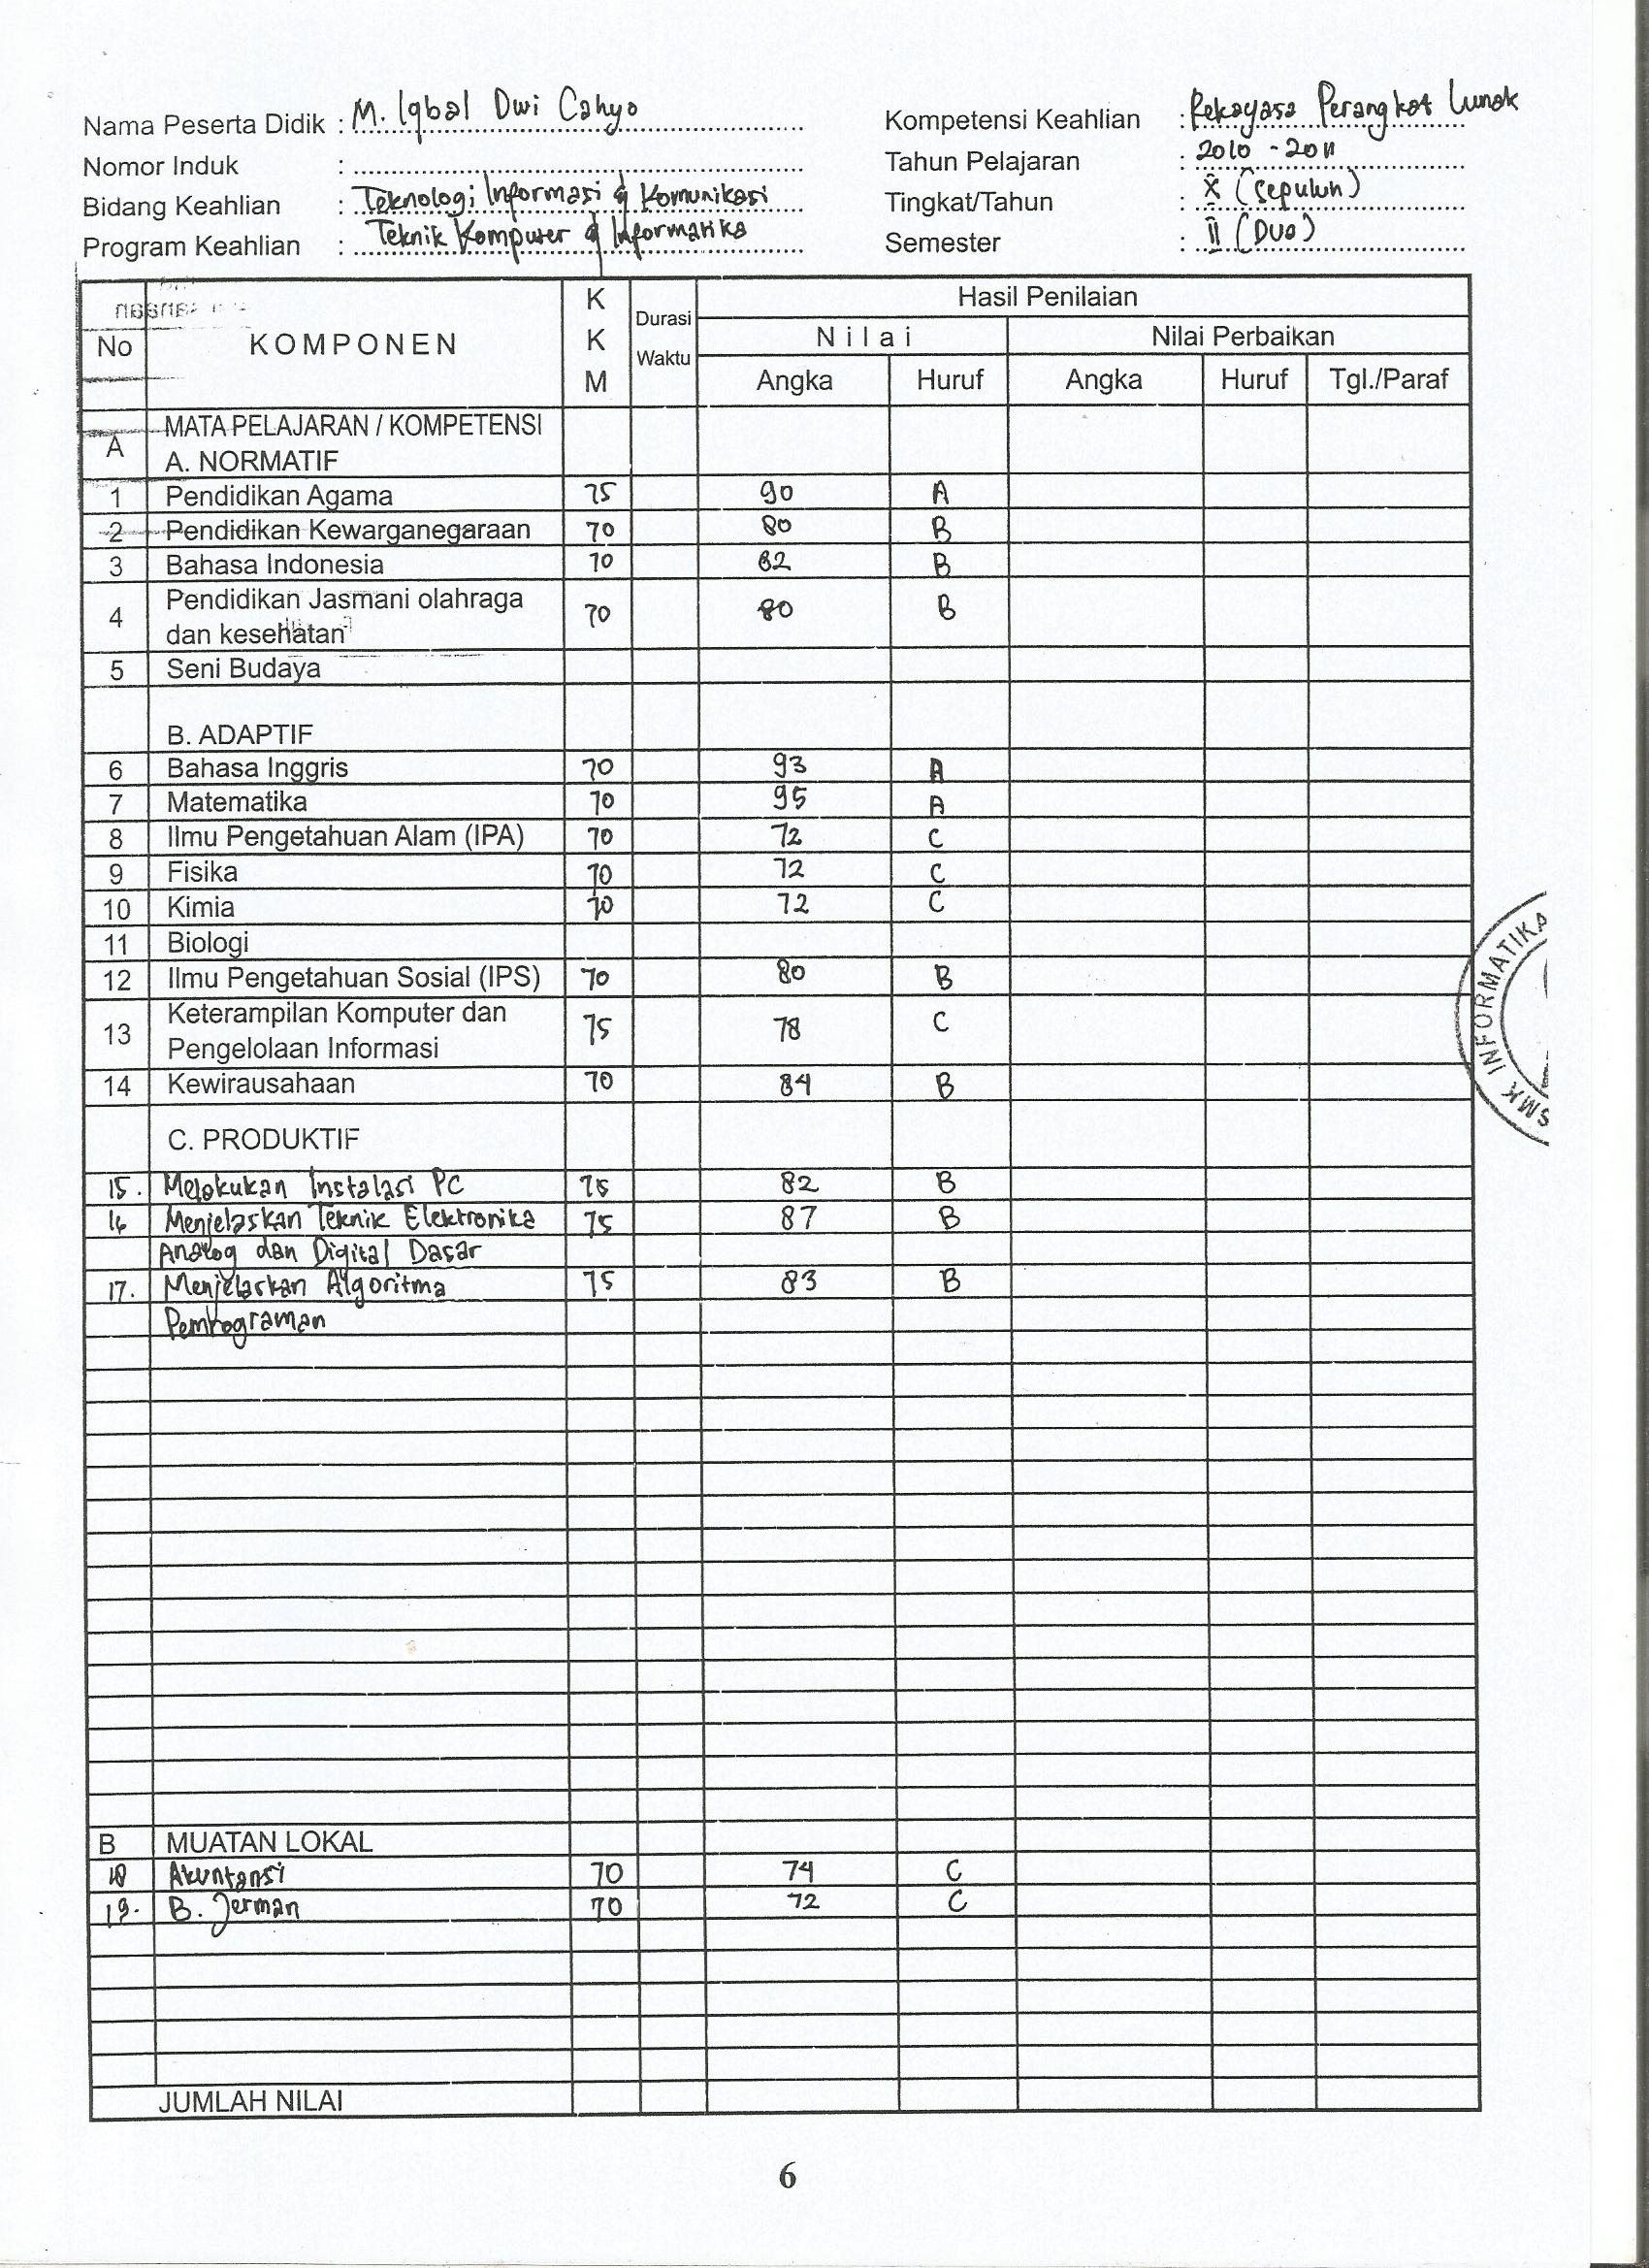 Nama Peserta Didik : M. Iqbal Dwi Cahyo
Nomor Induk :
Bidang Keahlian : Teknologi Informasi & Komunikasi
Program Keahlian : Teknik Komputer & Informatika
Kompetensi Keahlian : Rekayasa Perangkat Lunak
Tahun Pelajaran : 2010 - 2011
Tingkat/Tahun : X (Sepuluh)
Semester : II (Dua)
No KOMPONEN KKM Durasi Waktu Hasil Penilaian
Nilai Nilai Perbaikan
Angka Huruf Angka Huruf Tgl./Paraf
A MATA PELAJARAN / KOMPETENSI
A. NORMATIF
1 Pendidikan Agama 75 90 A
2 Pendidikan Kewarganegaraan 70 80 B
3 Bahasa Indonesia 70 82 B
4 Pendidikan Jasmani olahraga
dan kesehatan 70 80 B
5 Seni Budaya
B. ADAPTIF
6 Bahasa Inggris 70 93 A
7 Matematika 70 95 A
8 Ilmu Pengetahuan Alam (IPA) 70 72 C
9 Fisika 70 72 C
10 Kimia 70 72 C
11 Biologi
12 Ilmu Pengetahuan Sosial (IPS) 70 80 B
13 Keterampilan Komputer dan
Pengelolaan Informasi 75 78 C
14 Kewirausahaan 70 84 B
C. PRODUKTIF
15. Melakukan Instalasi PC 75 82 B
16 Menjelaskan Teknik Elektronika 75 87 B
Analog dan Digital Dasar
17. Menjelaskan Algoritma 75 83 B
Pemrograman
B MUATAN LOKAL
18 Akuntansi 70 74 C
19. B. Jerman 70 72 C
JUMLAH NILAI
SMK INFORMATIKA
6